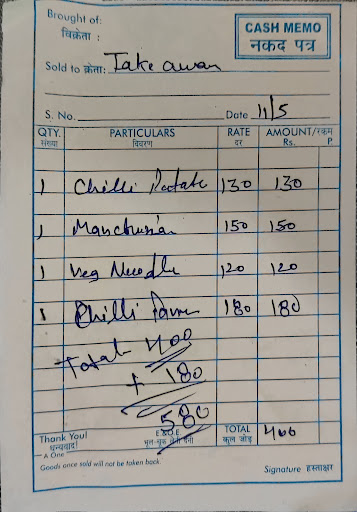 Brought of:
विक्रेता :
CASH MEMO
नकद पत्र
Sold to क्रेता: Take away
S. No. Date 11/5
QTY. PARTICULARS RATE AMOUNT/रकम
संख्या विवरण दर Rs. P
1 Chilli Potato 130 130
1 Manchurian 150 150
1 Veg Noodle 120 120
1 Chilli 180 180
Total 400
+ 180
580
Thank You! E.&O.E TOTAL 400
धन्यवाद! भूल-चूक लेनी देनी कुल जोड़
A One
Goods once sold will not be taken back. Signature हस्ताक्षर